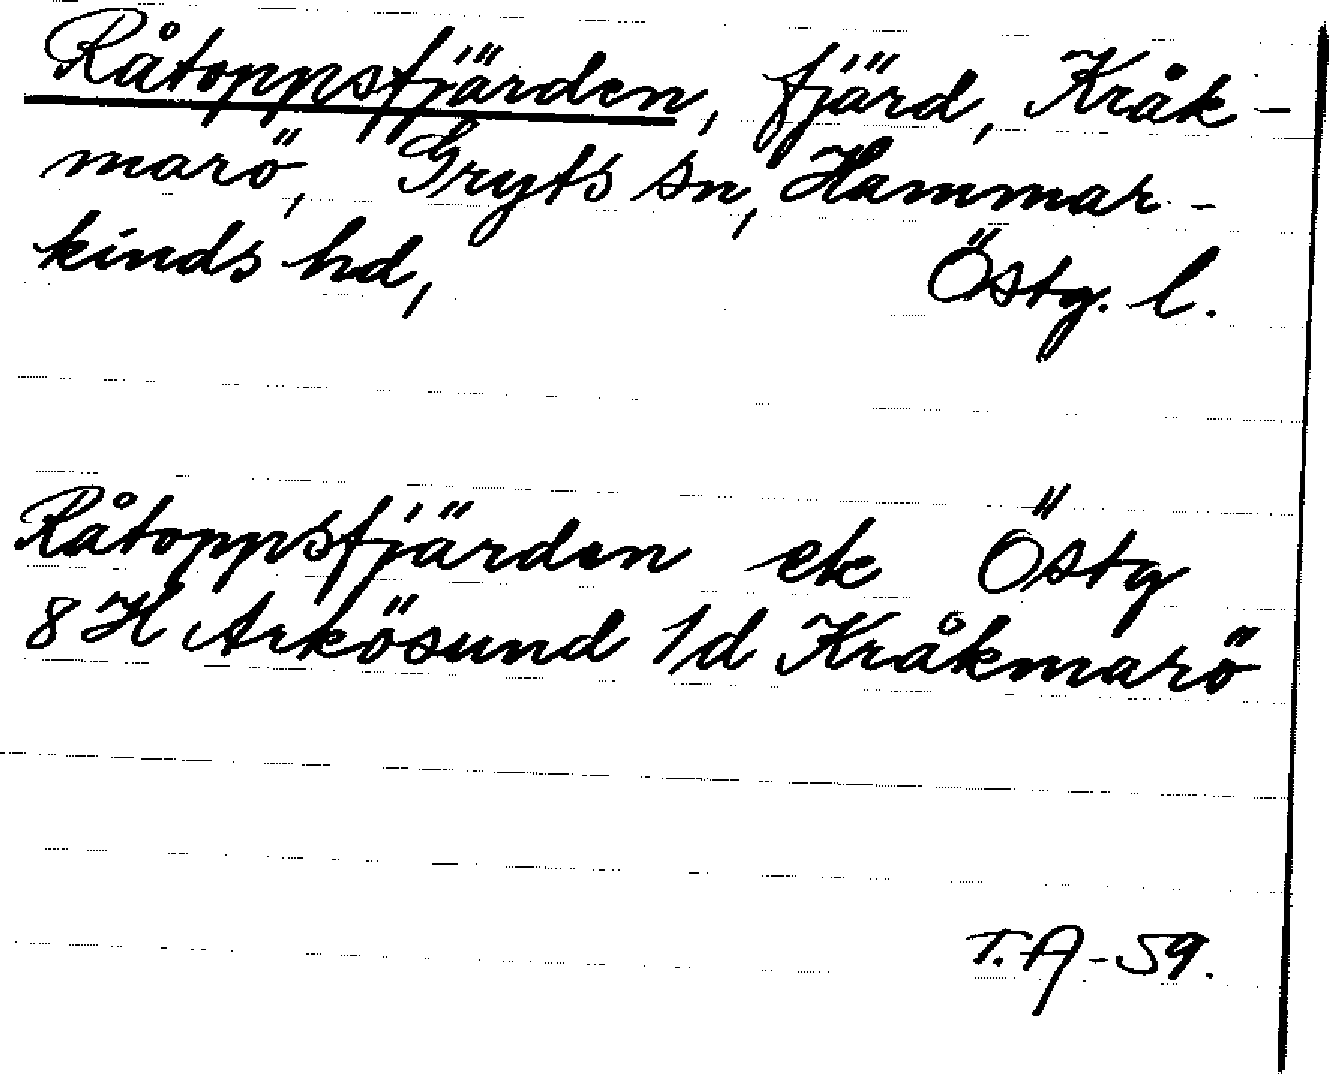 Råtoppsfjärden, fjärd, Kråk-
marö, Gryts sn, Hammar-
kinds hd, Östg. l.
Råtoppsfjärden ek Östg
8 H Arkösund 1d Kråkmarö
T.A-59.